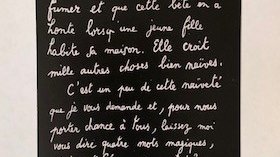 fumer et que cette bête en a
honte lorsqu'une jeune fille
habite sa maison. Elle croit
mille autres choses bien naïves.
C'est un peu de cette naïveté
que je vous demande et, pour nous
porter chance à tous, laissez moi
vous dire quatre mots magiques,